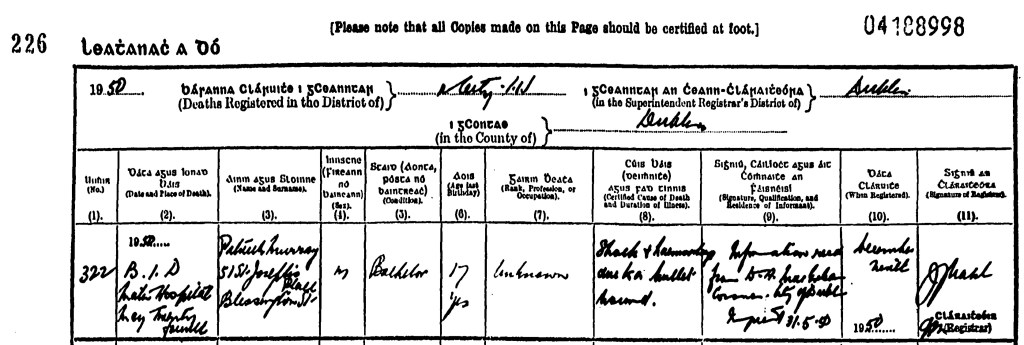 226
Leatanac a Dó
[Please note that all Copies made on this Page should be certified at foot.]
04188998
1950
Dáranna Cláruite i gCeanntar
(Deaths Registered in the District of)
City
i gCeanntar an Ceann-Cláraiteóra
(in the Superintendent Registrar's District of)
Dublin
i gContae
(in the County of)
Dublin
Uimir (No.) (1).
Dáta agus Ionad Báis (Date and Place of Death). (2).
Ainm agus Sloinne (Name and Surname). (3).
Innscne (Fireann nó Baineann) (Sex). (4).
Staid (Aonta, pósta nó baintreac) (Condition). (5).
Aois (Age last Birthday) (6).
Gairm Beata (Rank, Profession, or Occupation). (7).
Cúis Báis (deimhnite) agus fad tinnis (Certified Cause of Death and Duration of Illness). (8).
Signiú, Cáilíoct agus áit Comnaite an Fáisnéisí (Signature, Qualification, and Residence of Informant). (9).
Dáta Cláruite (When Registered). (10).
Signiú an Cláraiteóra (Signature of Registrar). (11).
322
1950
B. I. D
Mater Hospital
May Twenty
Patrick Murray
51 St. Joseph's
Place
Blessington St
M
Bachelor
17
yrs
Unknown
Shock & haemorrhage
due to a bullet
wound.
Information recd
from D. A. MacErlean
Coroner City of Dublin
Inquest 31.5.50
December
ninth
1950
Cláraiteóir
(Registrar)